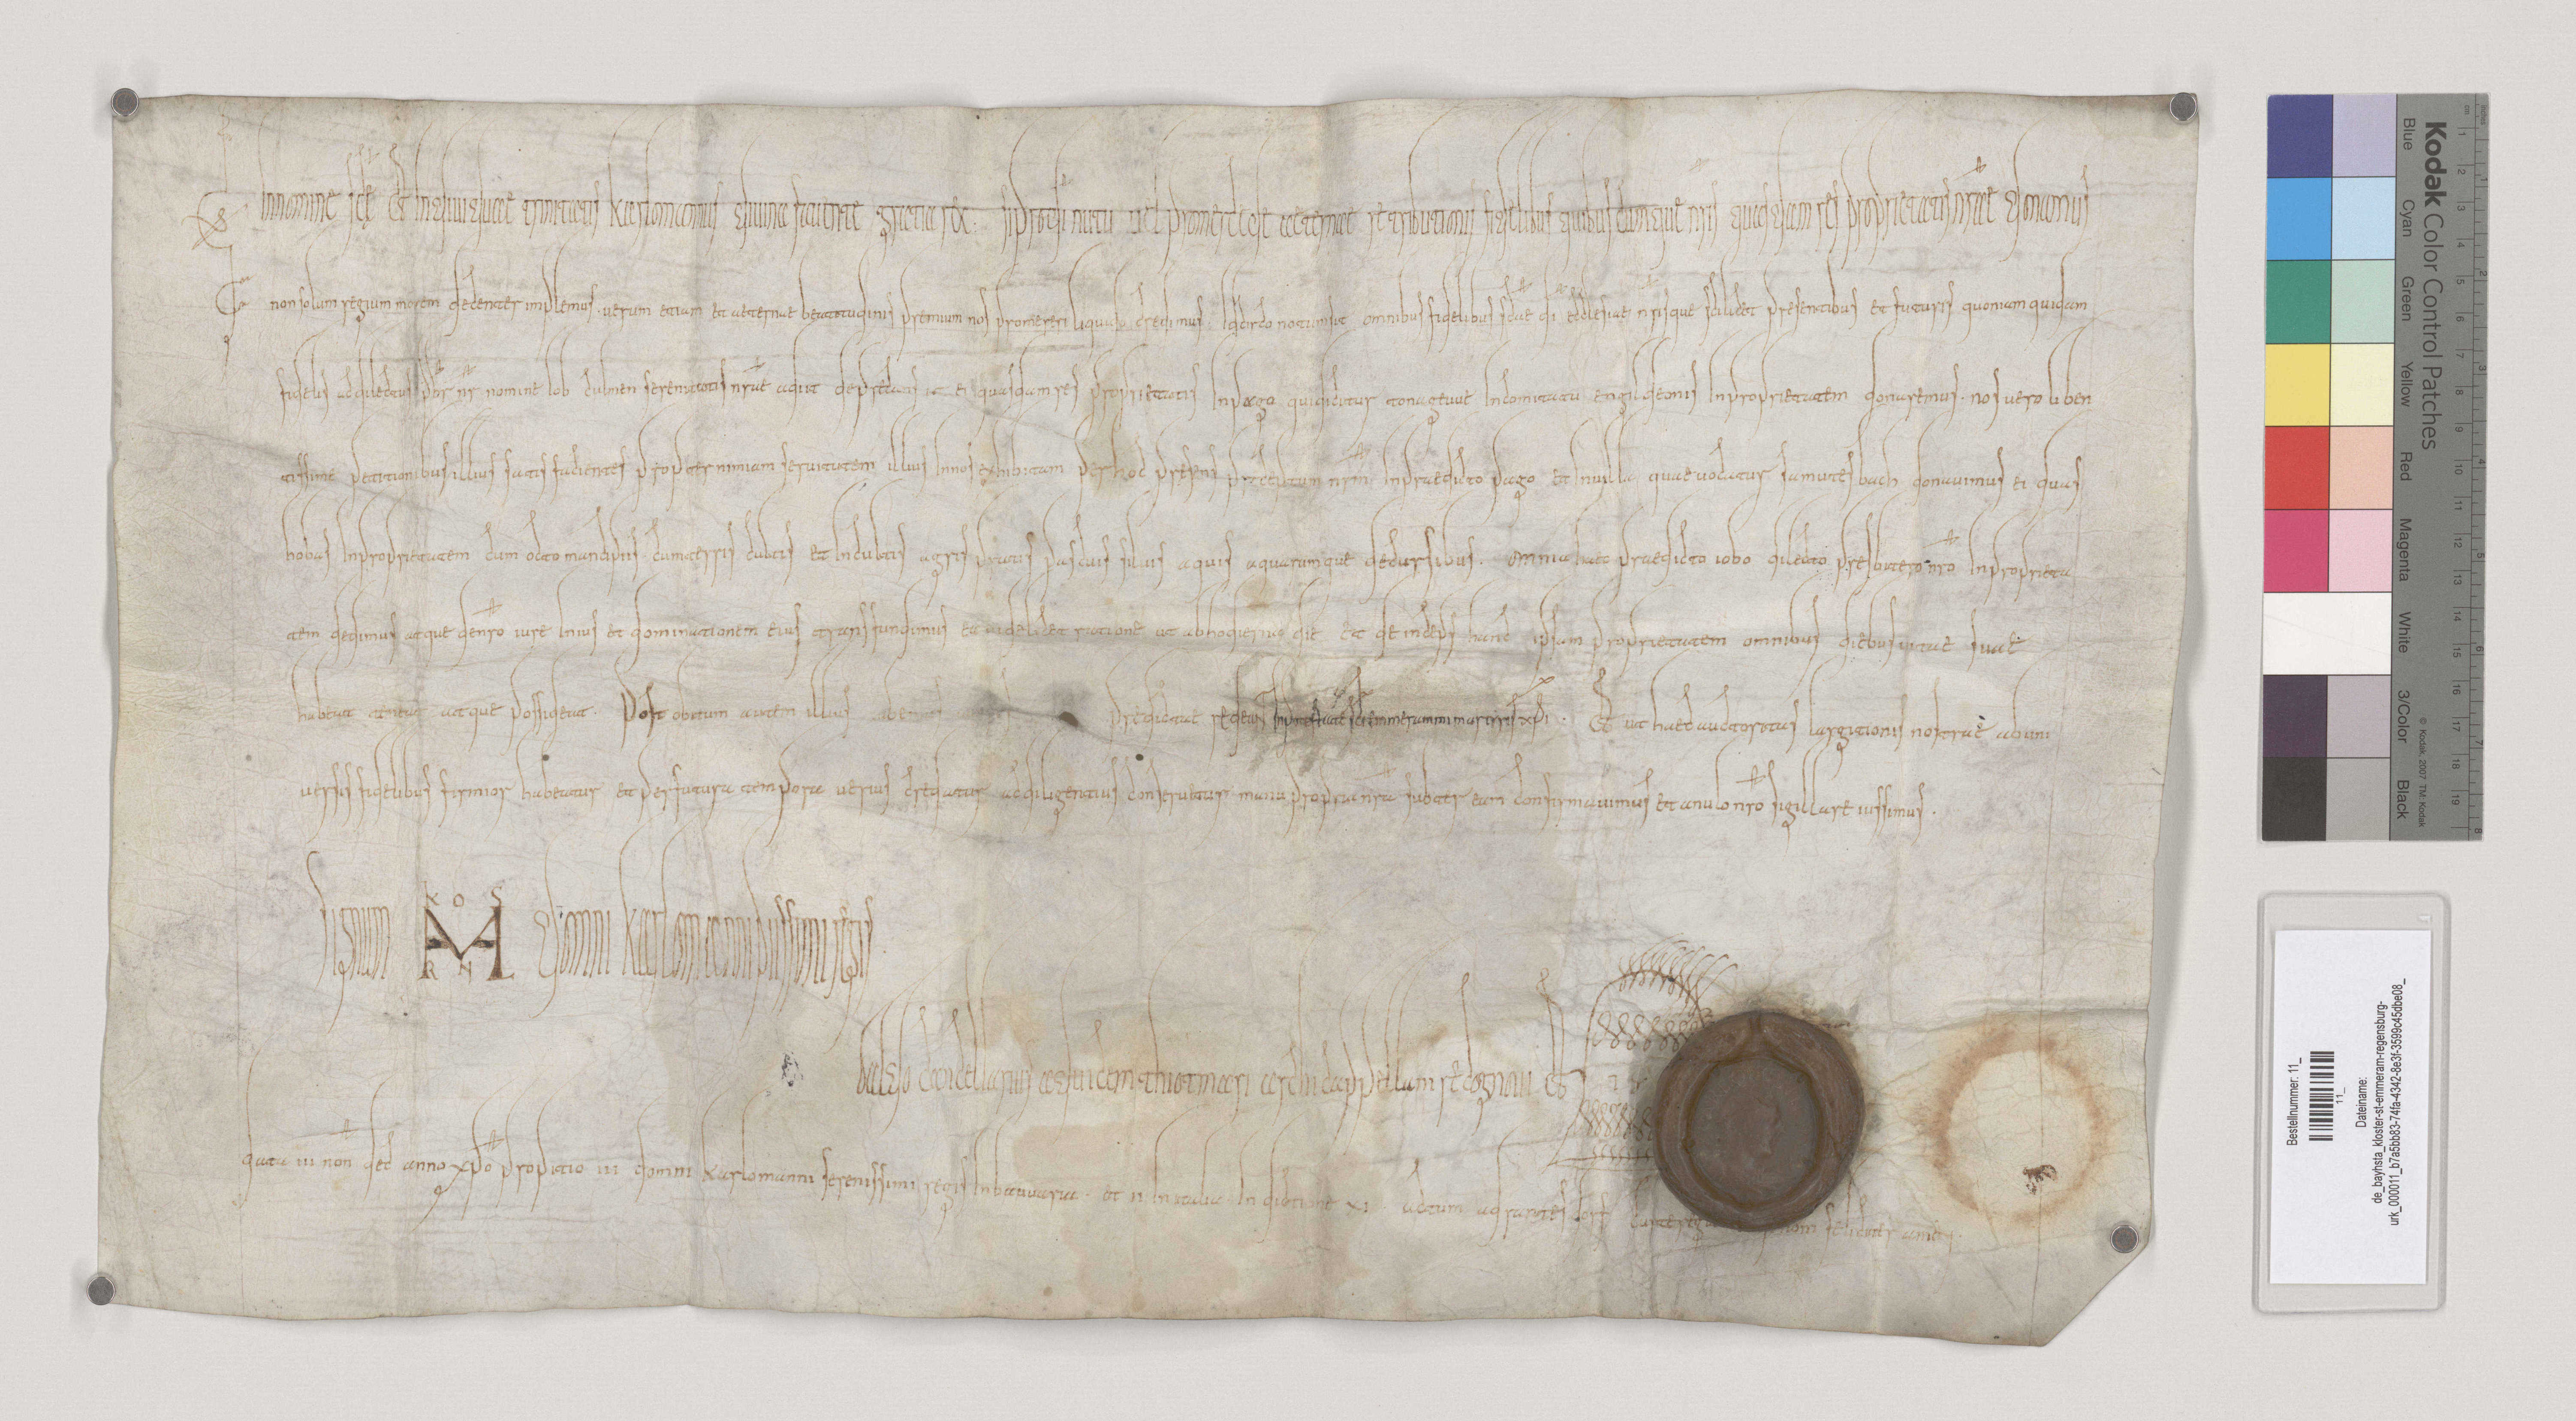 In nomine scae et individuae trinitatis Karlomannus divina favente gratia rex. Si pro di nutu vel pro mercede aeternae retributionis fidelibus quibuscunque nris quasdam res proprietatis nrae donamus
non solum regium morem decenter implemus. verum etiam et aeternae beatitudinis premium nos promereri liquido credimus. Idcirco notum sit omnibus fidelibus scae di ecclesiae nrisque scilicet presentibus et futuris quoniam quidam
fidelis ac dilectus pbr nr nomine iob serenitatis nrae adiit deprecatus ut ei quasdam res proprietatis in pago qui dicitur tonageuue in comitatu engildeonis in proprietatem donaremus. nos vero liben
tissime petitionibus illius satis facientes propter nimiam servitutem illius in nos exhibitam per hoc presens preceptum nrm in praedicto pago et in villa quae vocatur samutesbach donavimus ei quas
hobas in proprietatem cum octo mancipiis cum terris cultis et incultis agris pratis pascuis silvis aquis aquarumque decursibus. omnia haec praedicto iobo dilecto presbitero nro in proprieta
tem dedimus atque de nro iure in ius et dominationem eius transfundimus ea videlicet ratione ut ab hodierno die et deinceps hanc ipsam proprietatem omnibus diebus vitae suae
habeat teneat atque possideat. Post obitum autem illius predictae sci emmerammi martiris xpi. Et ut haec auctoritas largitionis nostrae ab uni
versis fidelibus firmior habeatur et per futura tempora verius credatur ac diligentius conservetur manu propria nra subter eam confirmavimus et anulo nro sigillare iussimus.
Signum domni Karlomanni piissimi regis
K O S
R N L
baldo cancellarius ad vicem thiotmari archicappellani recognovi et
data iii non dec anno xpo propitio iii domni karlomanni serenissimi regis in bauuaria. et ii in italia. indictione xi. actum ad
feliciter amen.
Kodak Color Control Patches
Blue
Cyan
Green
Yellow
Red
Magenta
White
3/Color
Black
© Kodak, 2007 TM: Kodak
cm 1 2 3 4 5 6 7 8 9 10 11 12 13 14 15 16 17 18 19
inches 1 2 3 4 5 6 7 8
Bestellnummer: 11_
11_
Dateiname:
de_bayhsta_kloster-st-emmeram-regensburg-
urk_000011_b7a5bb83-74fa-4342-8e3f-3599c45dbe08_